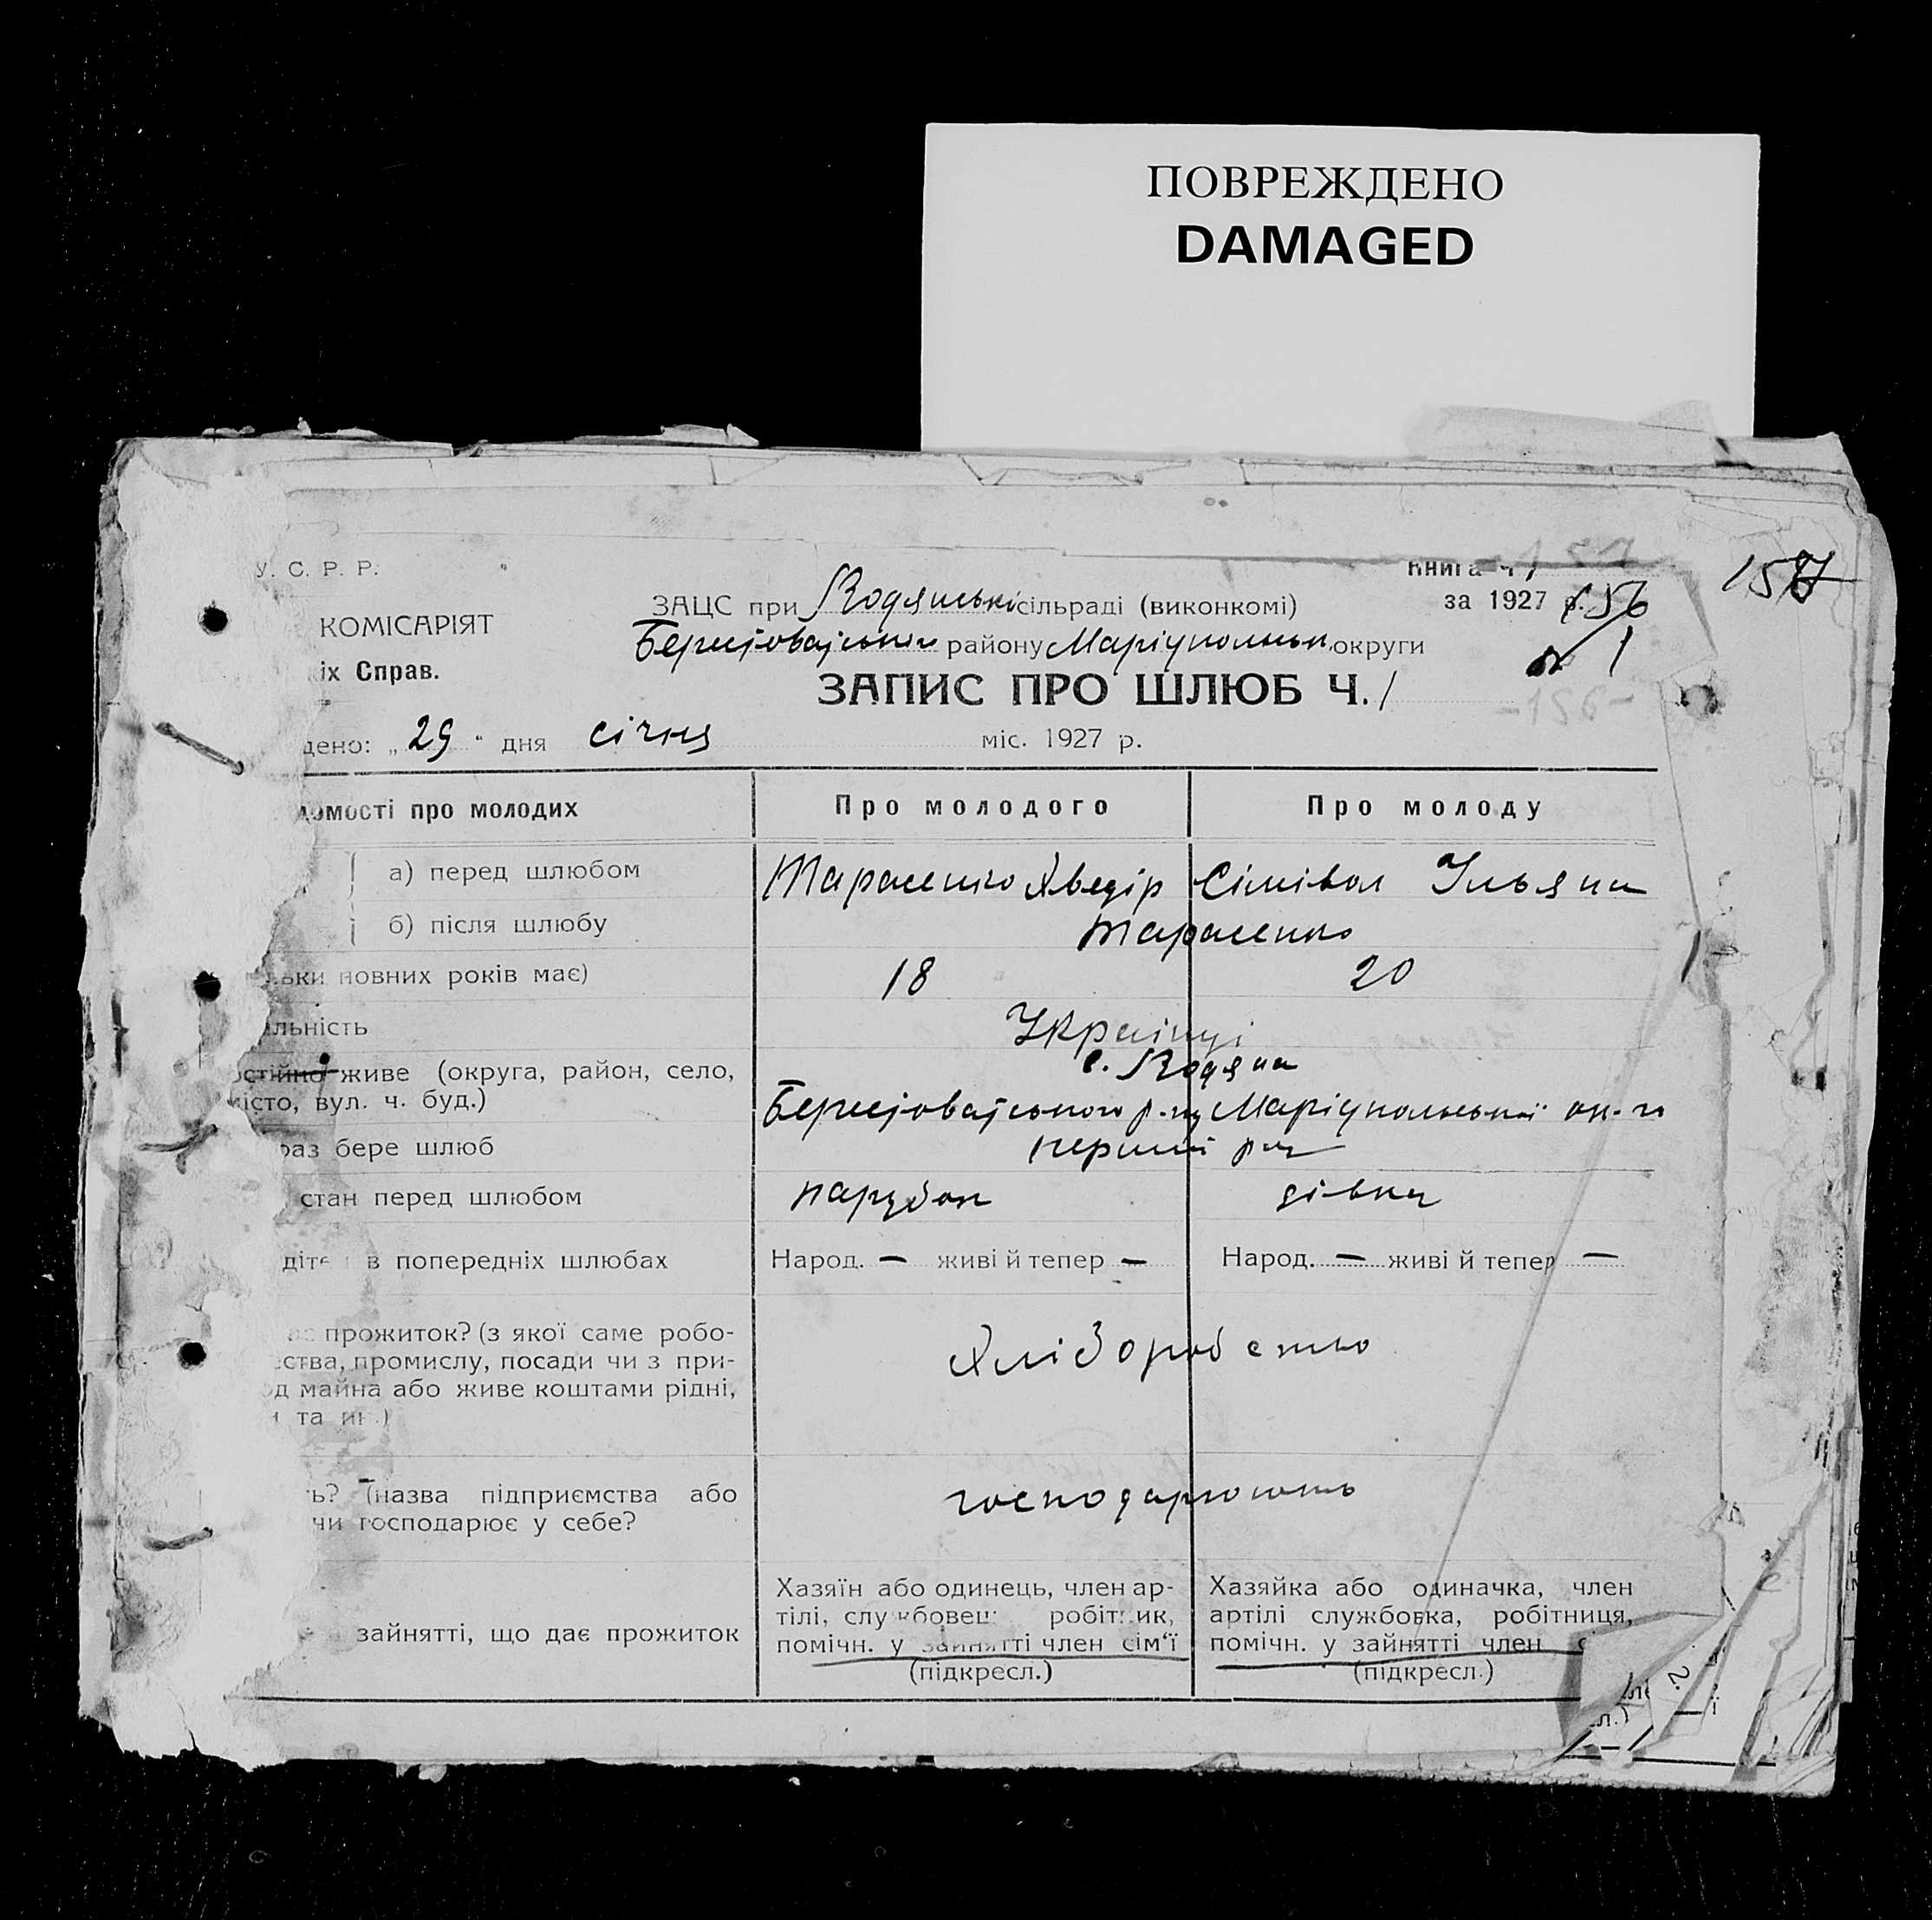 ПОВРЕЖДЕНО
DAMAGED
У. С. Р. Р.
КОМІСАРІЯТ
іх Справ.
ЗАЦС при Водянській сільраді (виконкомі)
району Маріупольськ. округи
Книга Ч. 1
за 1927 р.
156
1
157
-156-
ЗАПИС ПРО ШЛЮБ Ч. 1
дено: „29“ дня січня міс. 1927 р.
домості про молодих
Про молодого
Про молоду
а) перед шлюбом
Тарасенко Хведір
Ульяна
б) після шлюбу
Тарасенко
льки повних років має)
18
20
льність
Українці
остійно живе (округа, район, село,
місто, вул. ч. буд.)
с. Водяна
р-ну Маріупольської ок-ги
раз бере шлюб
перший раз
стан перед шлюбом
парубок
дівка
діте в попередніх шлюбах
Народ. — живі й тепер —
Народ. — живі й тепер —
прожиток? (з якої саме робо-
ства, промислу, посади чи з при-
од майна або живе коштами рідні,
та ин.)
Хліборобство
ь? (назва підприємства або
чи господарює у себе?
господарюють
зайнятті, що дає прожиток
Хазяїн або одинець, член ар-
тілі, службовець робітник,
помічн. у зайнятті член сім'ї
(підкресл.)
Хазяйка або одиначка, член
артілі службовка, робітниця,
помічн. у зайнятті член
(підкресл.)